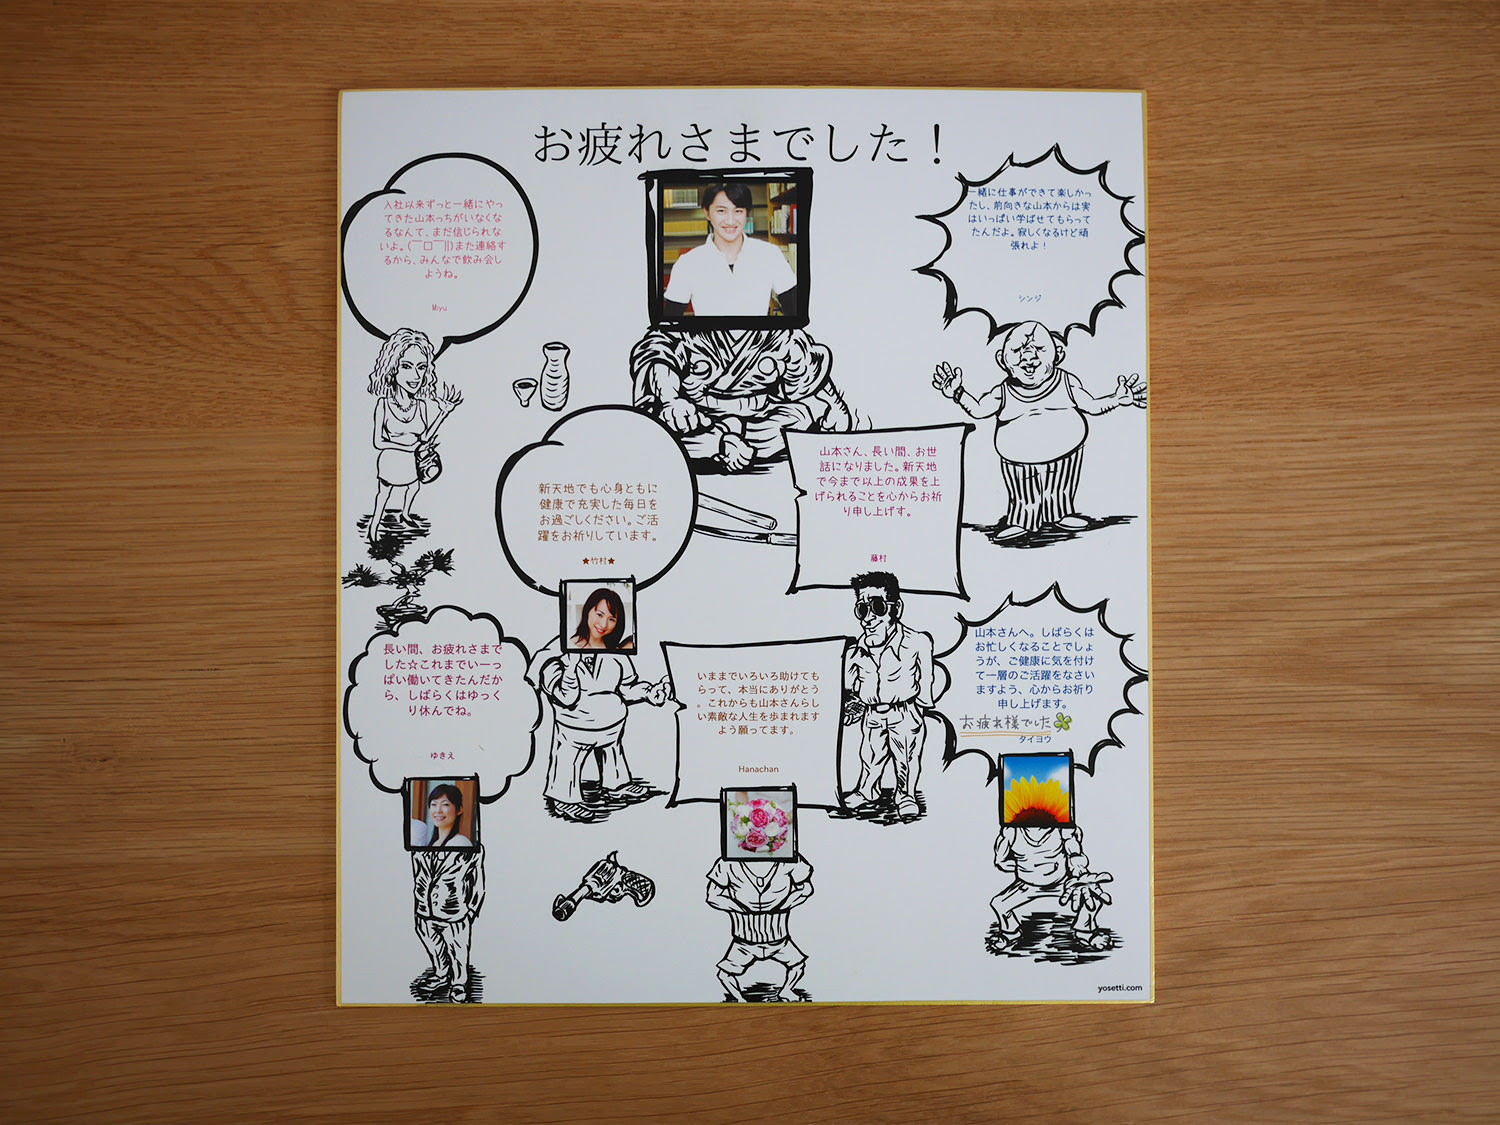 お疲れさまでした！
入社以来ずっと一緒にやっ
てきた山本っちがいなくな
るなんて、まだ信じられな
いよ。(￣□￣||)また連絡す
るから、みんなで飲み会し
ようね。
Miyu
一緒に仕事ができて楽しかっ
たし、前向きな山本からは実
はいっぱい学ばせてもらって
たんだよ。寂しくなるけど頑
張れよ！
シンジ
新天地でも心身ともに
健康で充実した毎日を
お過ごしください。ご活
躍をお祈りしています。
★竹村★
山本さん、長い間、お世
話になりました。新天地
で今まで以上の成果を上
げられることを心からお祈
り申し上げす。
藤村
長い間、お疲れさまで
した☆これまでいーっ
ぱい働いてきたんだか
ら、しばらくはゆっく
り休んでね。
ゆきえ
いままでいろいろ助けても
らって、本当にありがとう
。これからも山本さんらし
い素敵な人生を歩まれます
よう願ってます。
Hanachan
山本さんへ。しばらくは
お忙しくなることでしょ
うが、ご健康に気を付け
て一層のご活躍をなさい
ますよう、心からお祈り
申し上げます。
お疲れ様でした
タイヨウ
yosetti.com